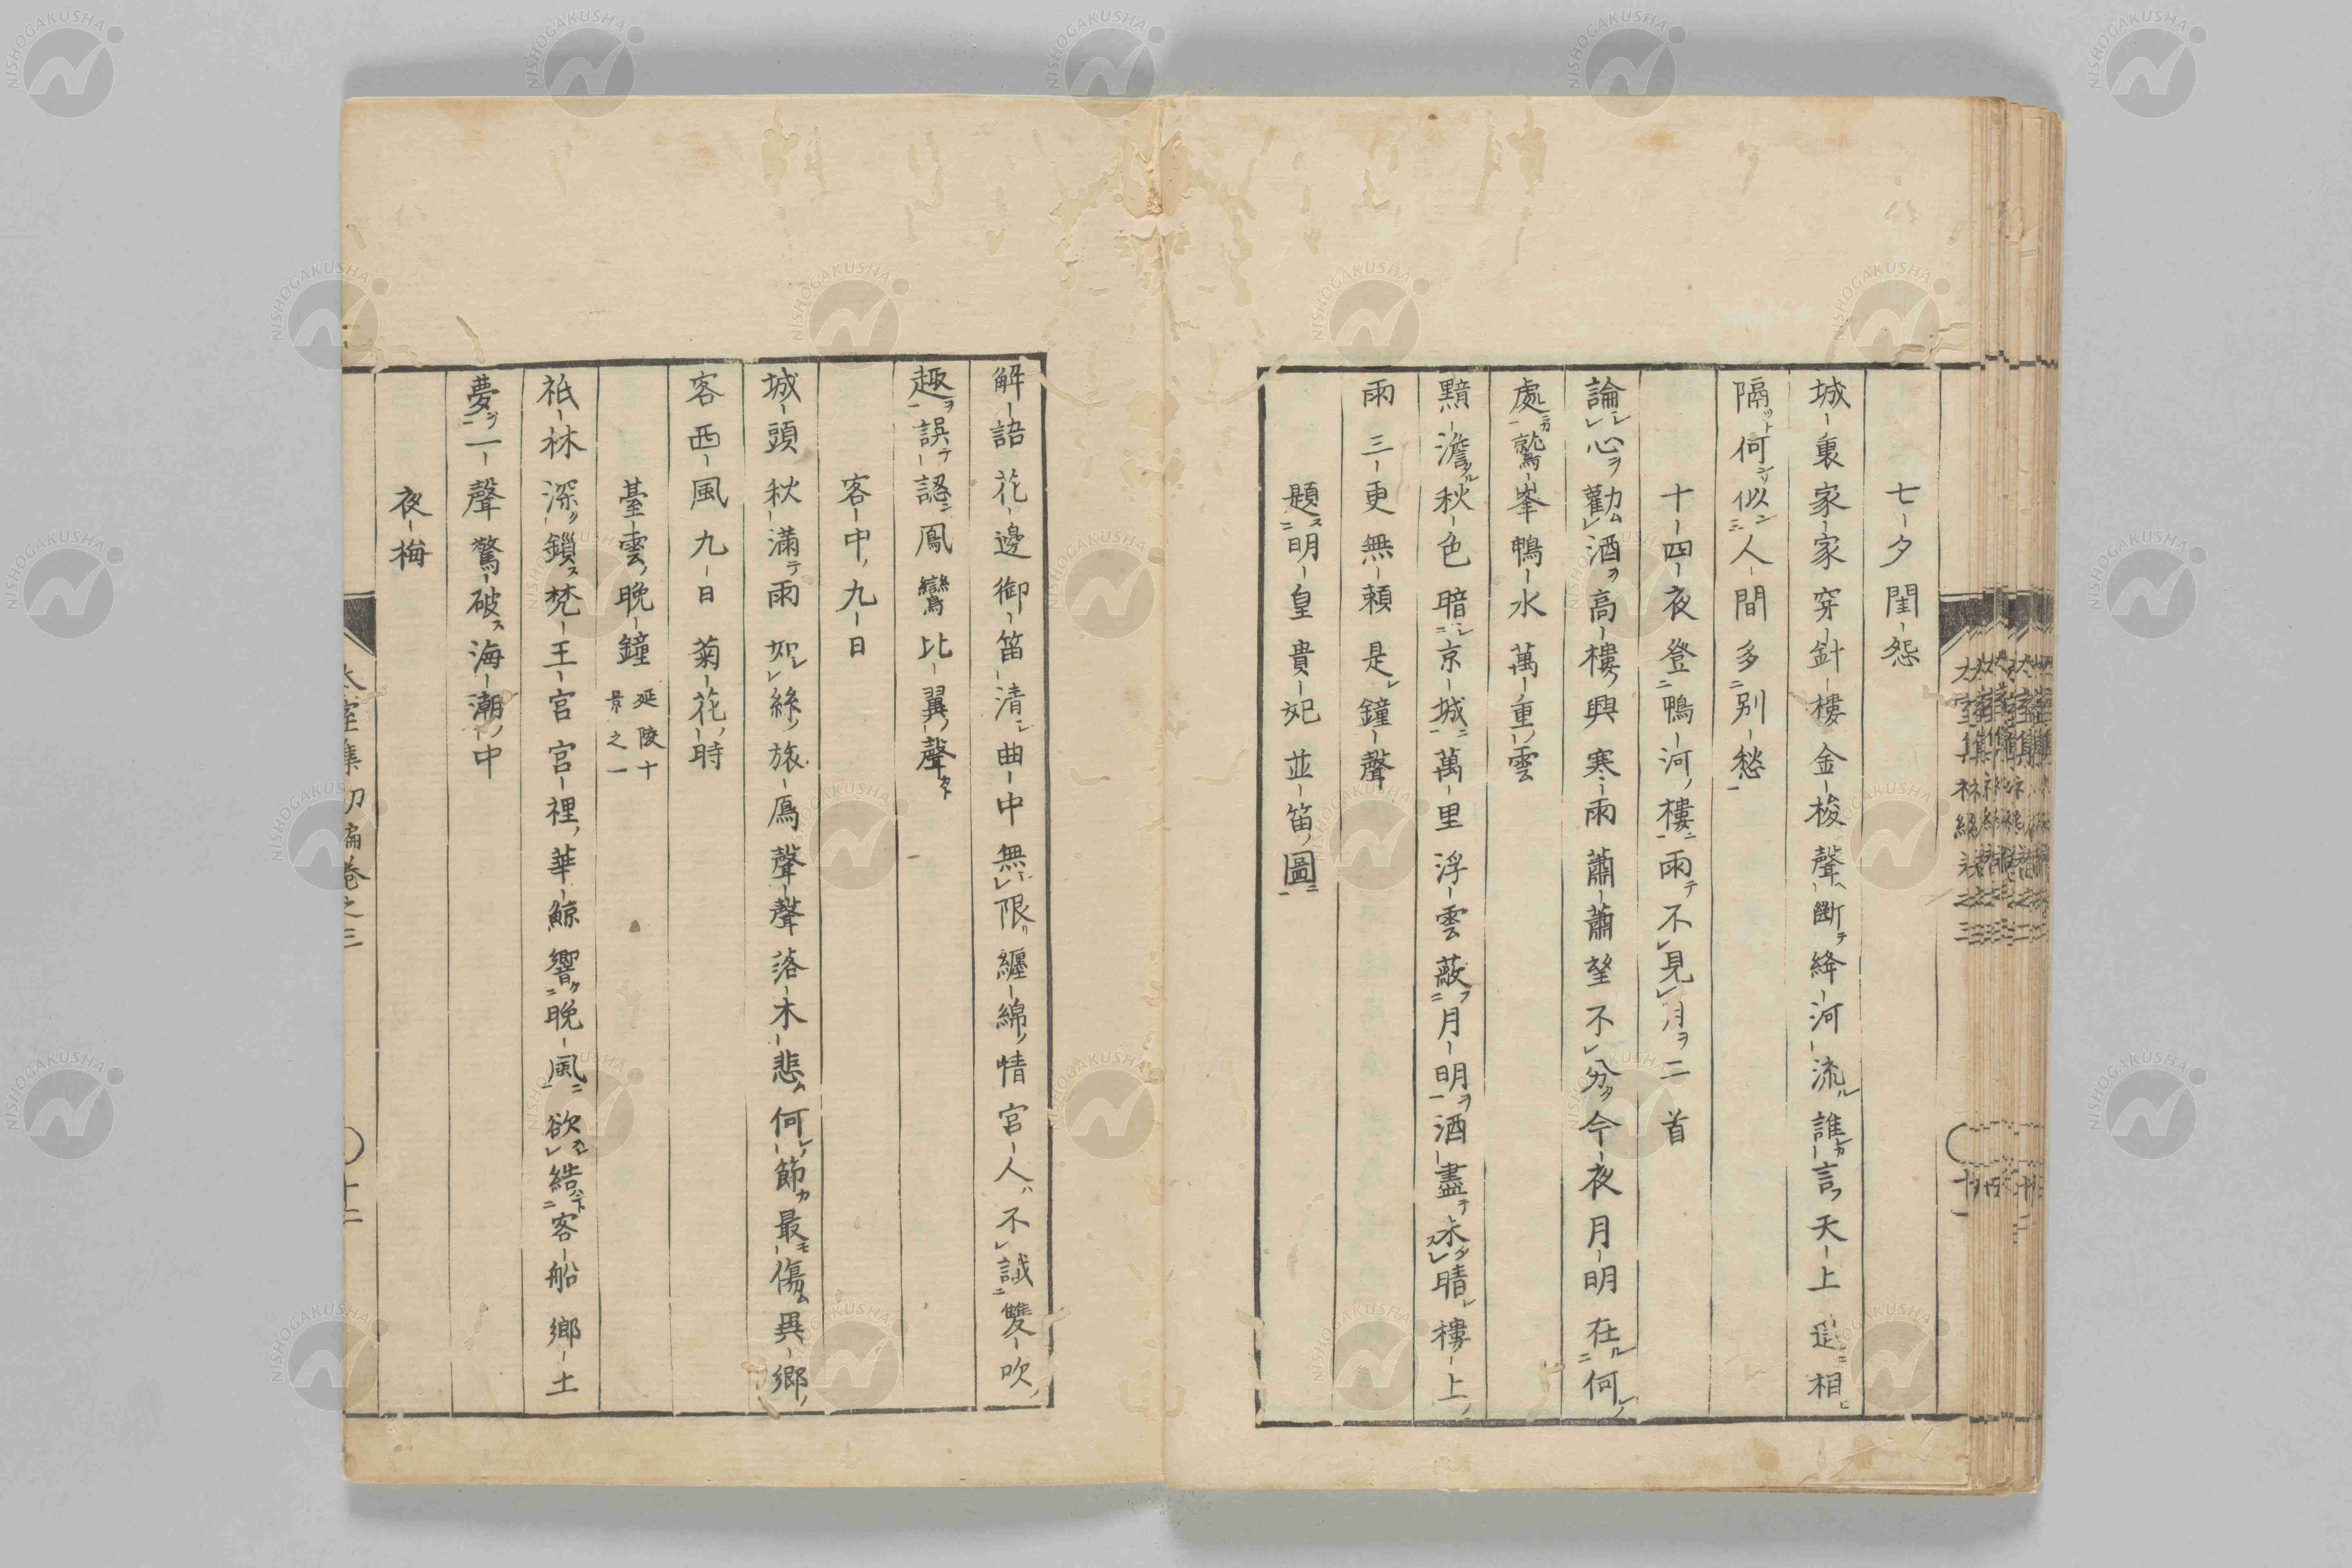 七夕閨怨
城裏家家穿針樓金梭聲斷絳河流誰言天上遥相
隔何似人間多別愁
十四夜登鴨河樓雨不見月二首
論心勸酒高樓興寒雨蕭蕭望不分今夜月明在何
處鷲峯鴨水萬重雲
黯澹秋色暗京城萬里浮雲蔽月明酒盡未晴樓上
雨三更無賴是鐘聲
題明皇貴妃並笛圖
解語花邊御笛清曲中無限纏綿情宮人不識雙吹
趣誤認鳳鸞比翼聲
客中九日
城頭秋滿雨如絲旅鴈聲聲落木悲何節最傷異鄉
客西風九日菊花時
臺雲晩鐘 延陵十景之一
祇林深鎖梵王宮宮裡華鯨響晩風欲結客船鄉土
夢一聲驚破海潮中
夜梅
太室集初編卷之三
十二
NISHOGAKUSHA